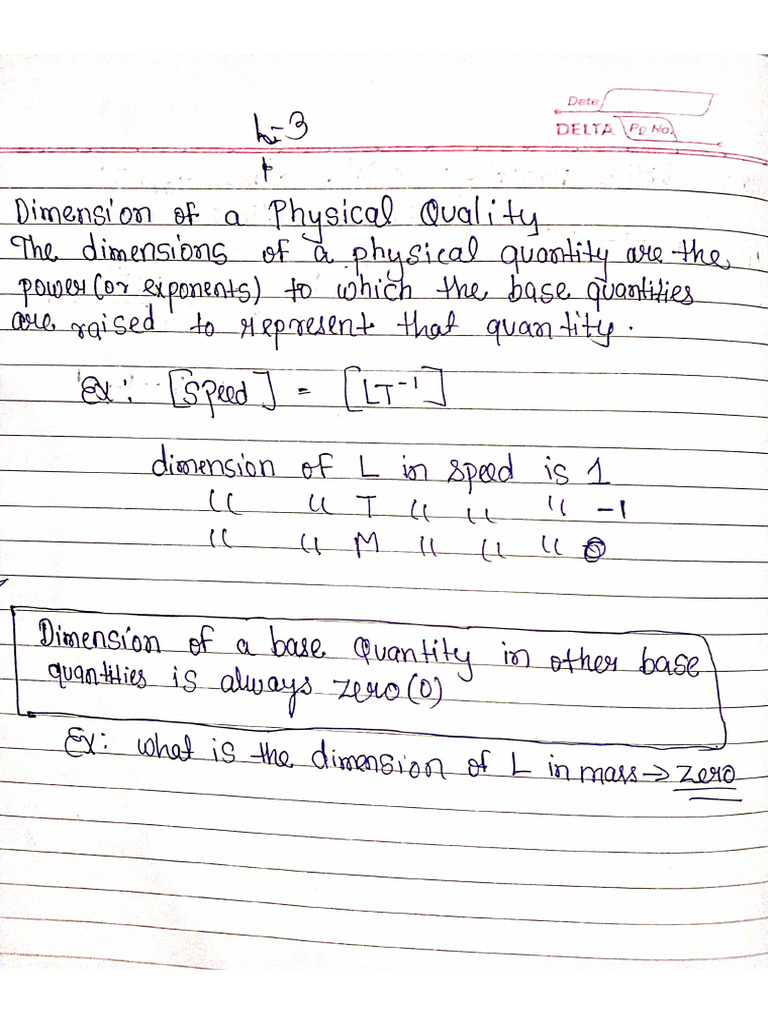 Date
L-3
DELTA Pg No.
Dimension of a Physical Quality
The dimensions of a physical quantity are the
power (or exponents) to which the base quantities
are raised to represent that quantity.
Ex: [Speed] = [LT⁻¹]
dimension of L in speed is 1
" " T " " " -1
" " M " " " 0
Dimension of a base Quantity in other base
quantities is always zero (0)
Ex: what is the dimension of L in mass → zero